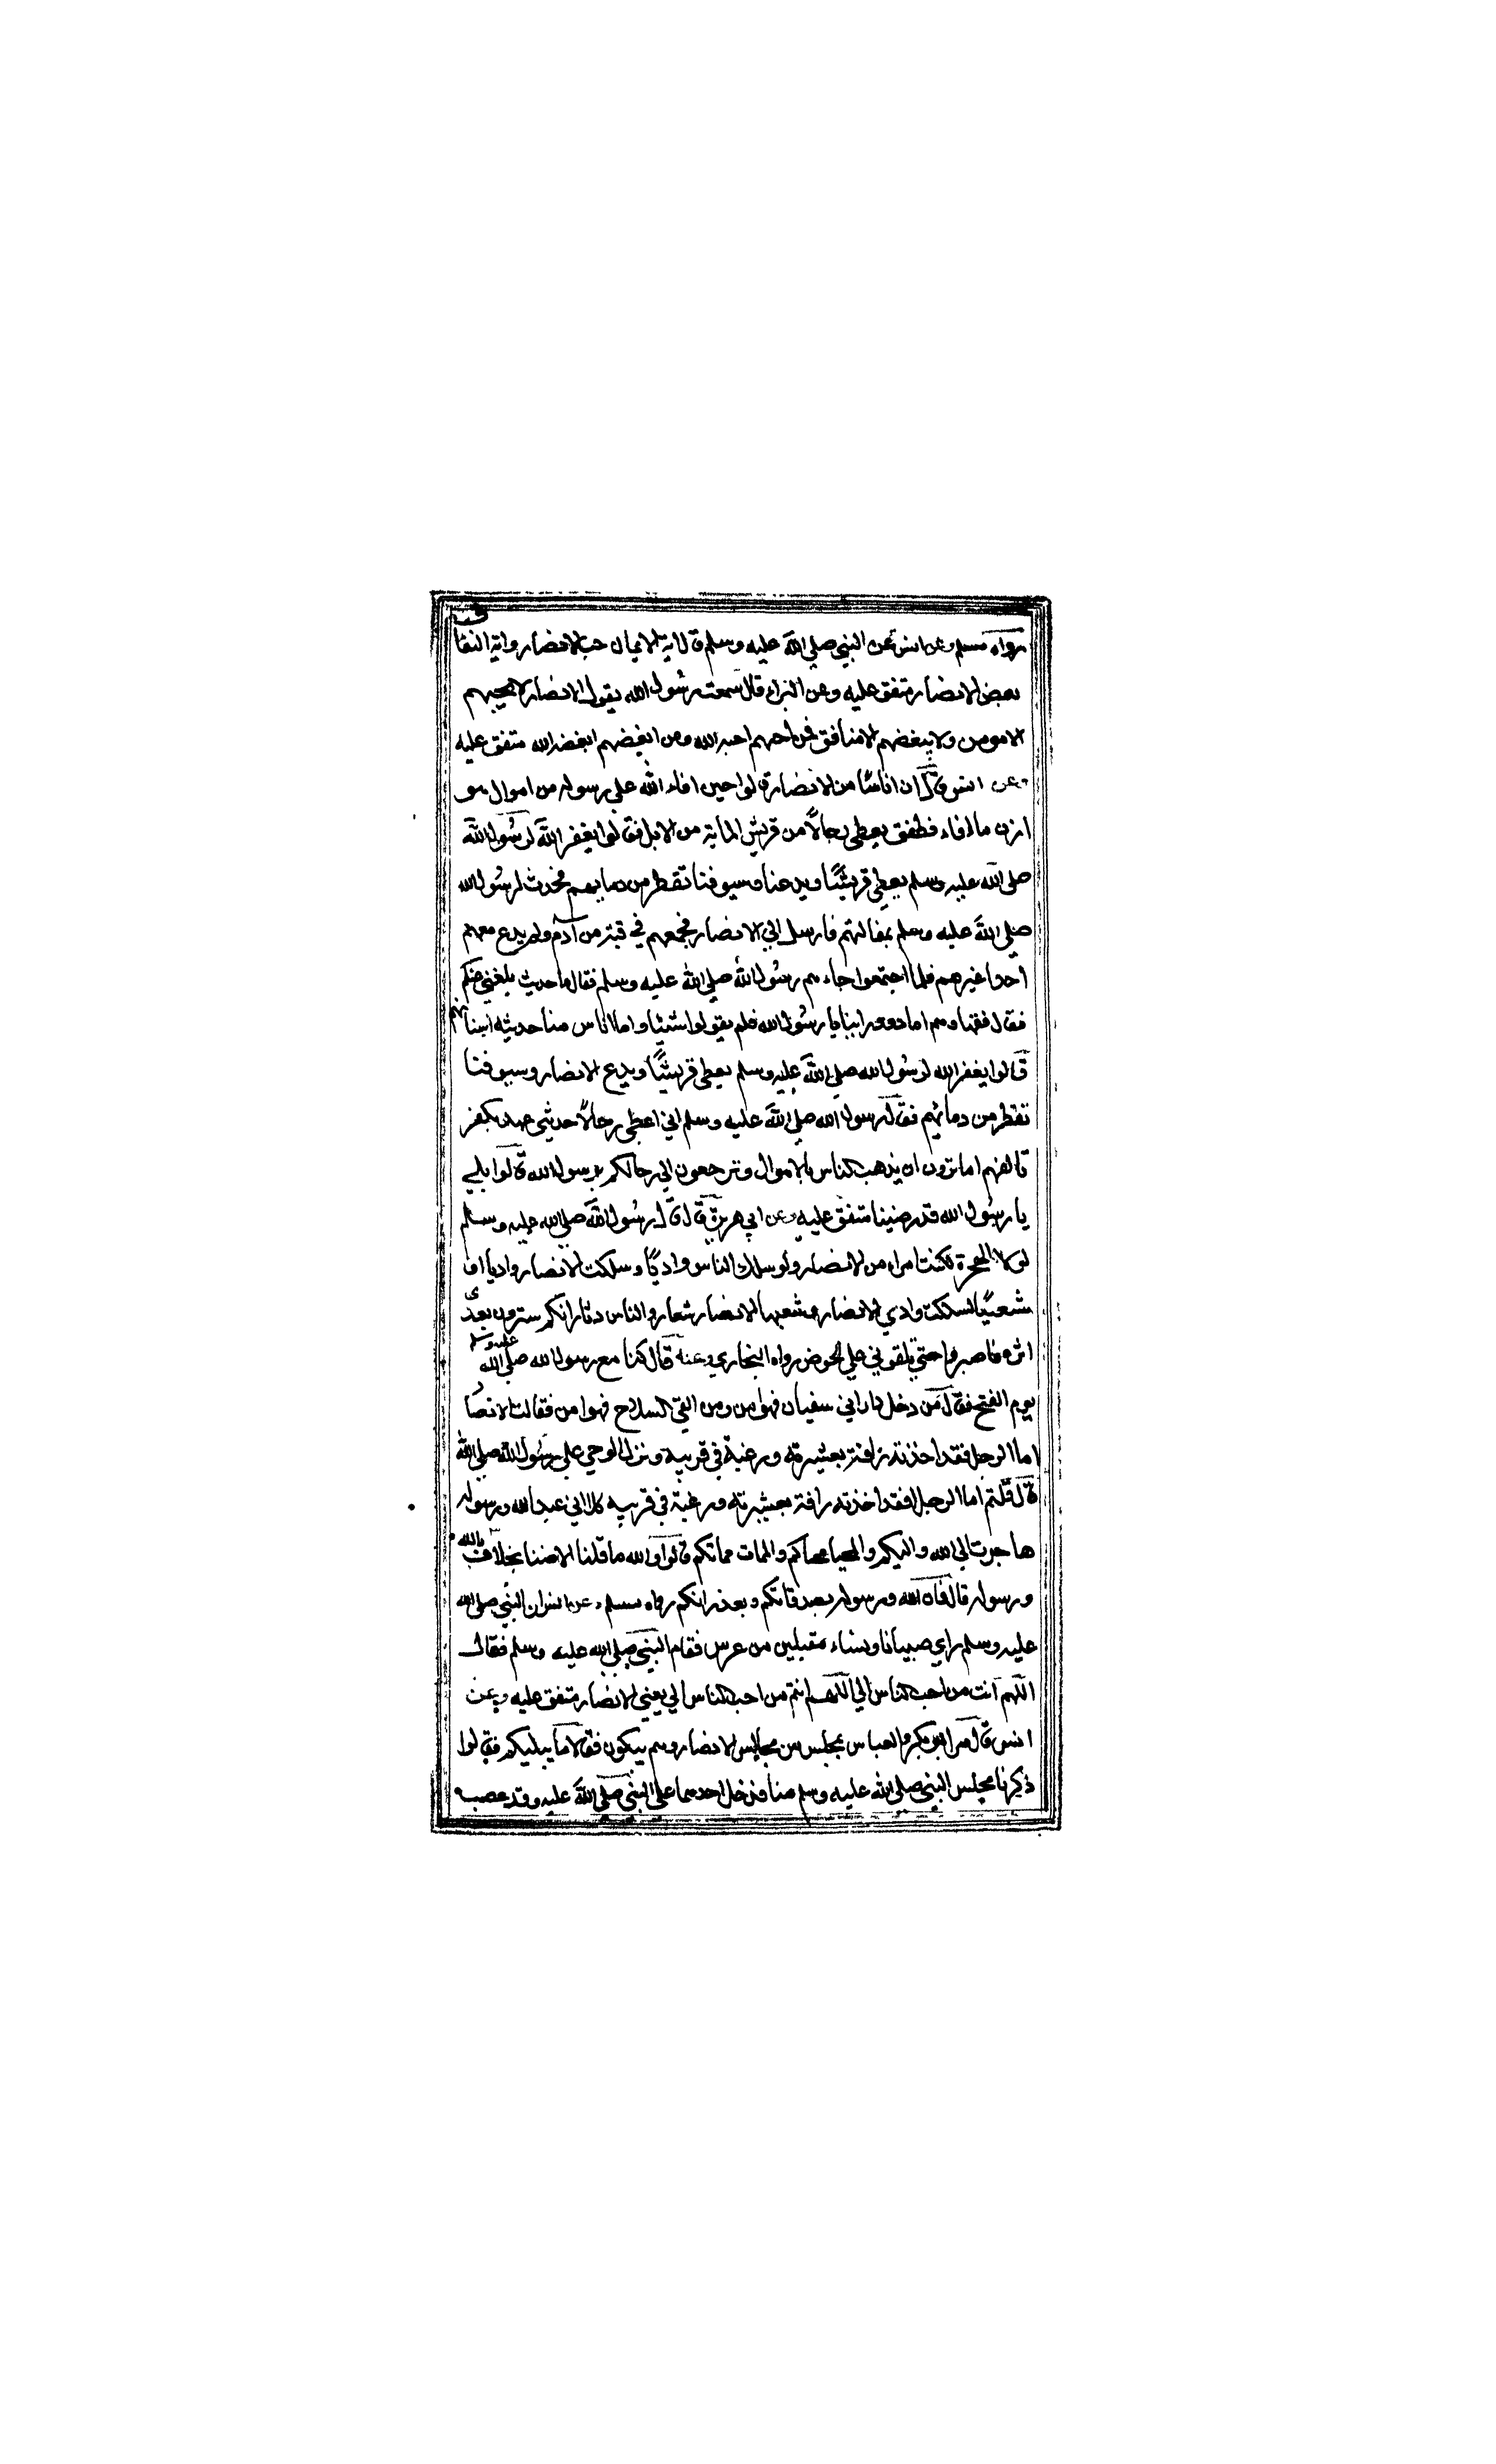 رواه مسلم وعن انس عن النبي صلي الله عليه وسلم قال اية الايمان حب الانصار واية النفاق
بعض الانصار متفق عليه وعن البراء قال سمعت رسول الله يقول الانصار لا يحبهم
الا مومن ولا يبغضهم الا منافق فمن احبهم احبه الله ومن ابغضهم ابغضه الله متفق عليه
وعن انس قال ان اناسًا من الانصار قالوا حين افاء الله علي رسوله من اموال هو
ازن ما افاء فطفق يعطي رجالاً من قريش الماية من الابل فقالوا يغفر الله لرسول الله
صلى الله عليه وسلم يعطي قريشًا ويدعنا وسيوفنا تقطر من دمايهم فحدث لرسول الله
صلي الله عليه وسلم بمقالتهم فارسل الي الانصار فجمعهم في قبة من آدم ولم يدع معهم
احدا غيرهم فلما اجتمعوا جاءهم رسول الله صلي الله عليه وسلم فقال ما حديث بلغني عنكم
فقال فقهاوهم اما ذوو راينا يا رسول الله فلم يقولوا شيئا واما اناس منا حديثه اسنانهم
قالوا يغفر الله لرسول الله صلي الله عليه وسلم يعطي قريشًا ويدع الانصار وسيوفنا
تقطر من دمائهم فقال رسول الله صلي الله عليه وسلم اني اعطي رجالاً حديثي عهد بكفر
تالفهم اما ترون ان يذهب الناس بالاموال وترجعون الي رحالكم برسول الله قالوا بلي
يا رسول الله قد رضينا متفق عليه وعن ابي هريرة قال قال رسول الله صلى الله عليه وسلم
لولا الهجرة لكنت امراء من الانصار ولو سلك الناس واديًا وسلكت الانصار واديا او
شعبًا لسلكت وادي الانصار وشعبها الانصار شعار والناس دثار انكم سترون بعدي
اثرة فاصبروا حتي تلقوني علي الحوض رواه البخاري وعنه قال كنا مع رسول الله صلي الله عليه وسلم
يوم الفتح فقال من دخل دار ابي سفيان فهو امن ومن القي السلاح فهو امن فقالت الانصار
اما الرجل فقد اخذته رافة بعشيرته ورغبة في قريبه ونزل الوحي علي رسول الله صلي الله
قال قلتم اما الرجل فقد اخذته رافة بعشيرته ورغبة في قريبه كلا اني عبد الله ورسوله
هاجرت الي الله واليكم والمحيا محياكم والممات مماتكم قالوا والله ما قلنا الا ضنا بالله
ورسوله قال فان الله ورسوله يصدقانكم ويعذرانكم رواه مسلم وعن انس ان النبي صلي الله
عليه وسلم راي صبيانا ونساء مقبلين من عرس فقام النبي صلي الله عليه وسلم فقال
اللهم انت من احب الناس الي اللهم انتم من احب الناس الي يعني الانصار متفق عليه وعن
انس قال مر ابو بكر والعباس بمجلس من مجالس الانصار وهم يبكون فقالا ما يبكيكم فقالوا
ذكرنا مجلس النبي صلي الله عليه وسلم منا فدخل احدهما علي النبي صلي الله عليه وقد عصب